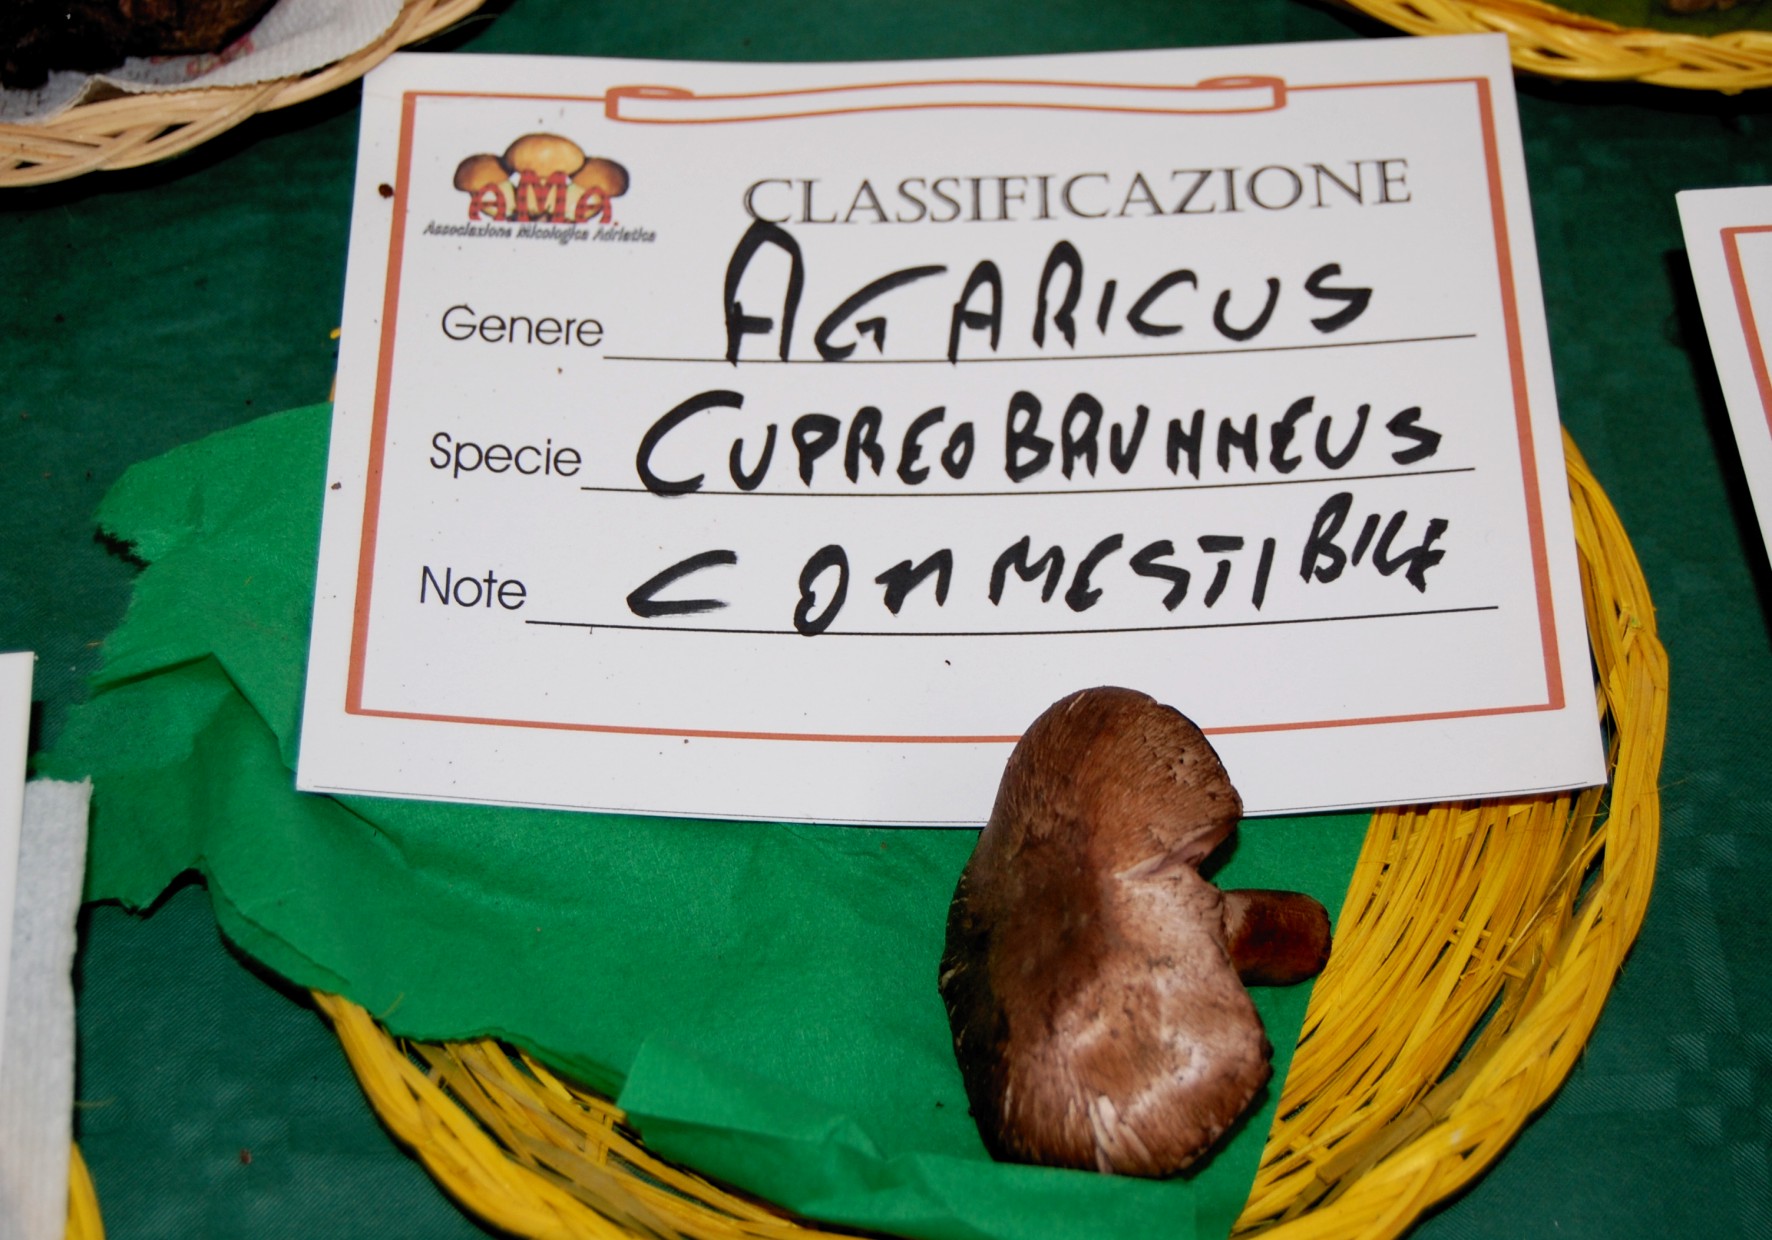 AMA
Associazione Micologica Adriatica
CLASSIFICAZIONE
Genere AGARICUS
Specie CUPREOBRUNNEUS
Note COMMESTIBILE